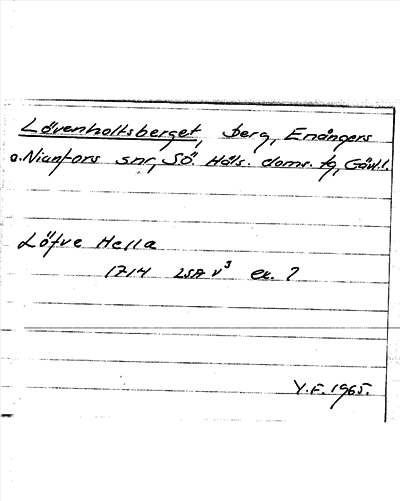 Lövenholtsberget, berg, Enångers
o. Nianfors snr, SÖ. Häls. doms. tg, Gävl.l.
Löfve Hella
1714 LSA V³ ex. 2
Y.F. 1965.